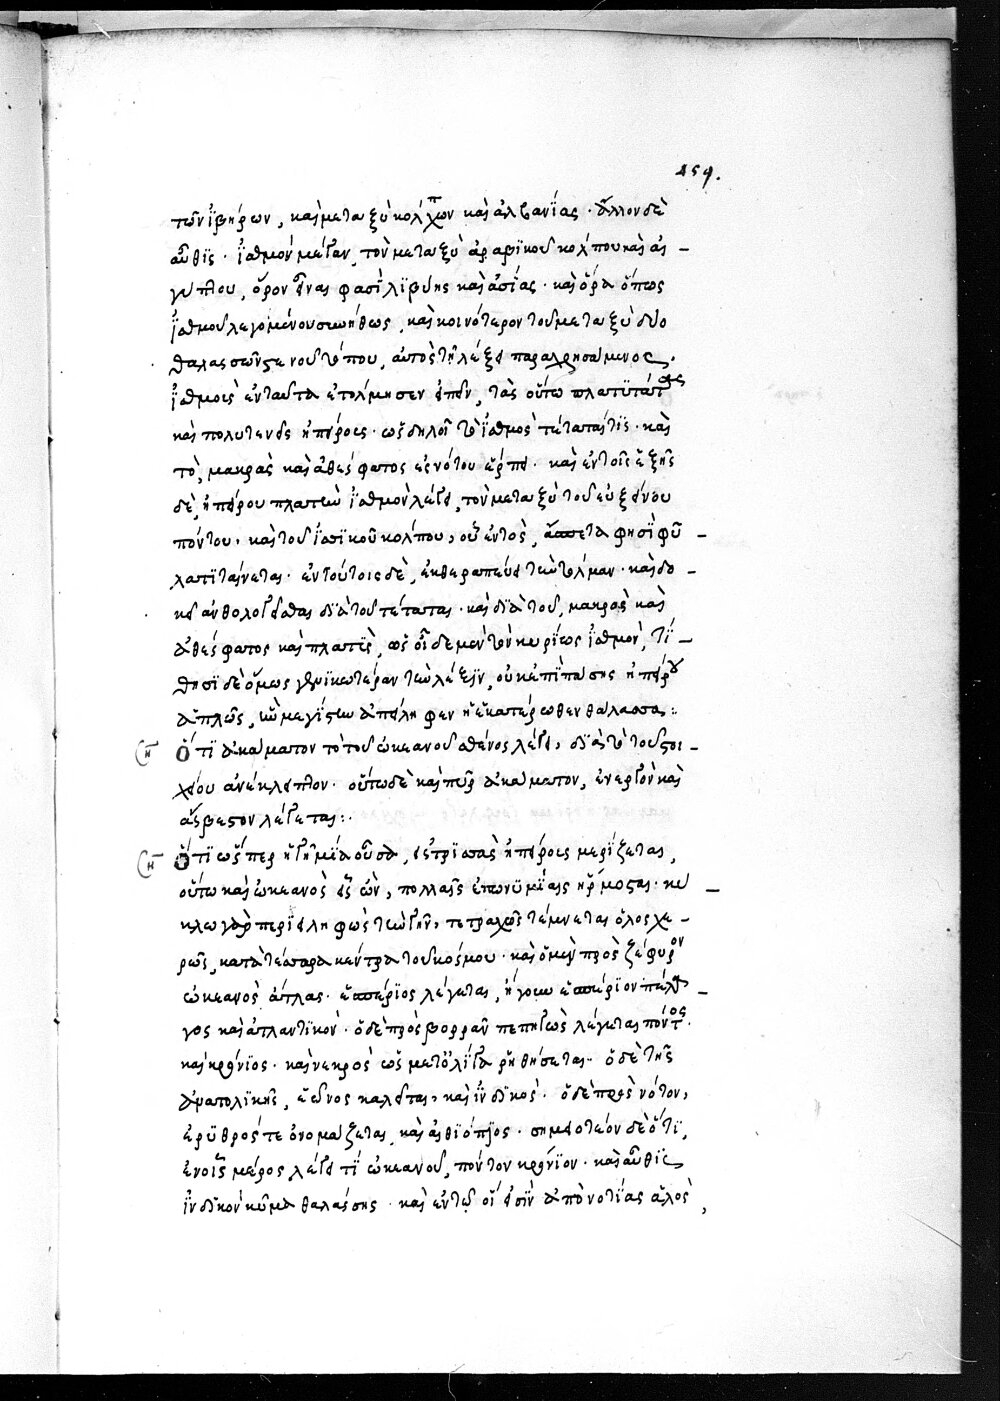 259.
τῶν ἰβήρων, καὶ μεταξὺ κόλχων καὶ ἀλβανίας · ἄλλον δὲ
αὖθις · ἰσθμὸν μέγαν, τὸν μεταξὺ ἀραβικοῦ κόλπου καὶ αἰ-
γύπτου, ὅρον εἶναι φασὶ λιβύης καὶ ἀσίας · καὶ ὅρα ὅπως
ἰσθμοῦ λεγομένου συνήθως, καὶ κοινότερον τοῦ μεταξὺ δύο
θαλασσῶν στενοῦ τόπου, αὐτὸς τῇ λέξει παραχρησάμενος.
ἰσθμοὺς ἐνταῦθα ἐτόλμησεν εἰπεῖν, τὰς οὕτω πλατυτάτας
καὶ πολυτενεῖς ἠπείρους · ὡς δηλοῖ τὸ ἰσθμὸς τέταται τίς · καὶ
τὸ, μακρὸς καὶ ἀθέσφατος ἐς νότον ἕρπει · καὶ ἐν τοῖς ἑξῆς
δὲ, ἠπείρου πλατὺν ἰσθμὸν λέγει, τὸν μεταξὺ τοῦ εὐξείνου
πόντου, καὶ τοῦ ἰσσικοῦ κόλπου, οὗ ἐντὸς, ἄσπετα φησὶ φῦ-
λα πιταίνεται · ἐν τούτοις δὲ, ἐκθεραπεύει τὴν τόλμαν · καὶ δο-
κεῖ ἀνθολογεῖσθαι διὰ τοῦ τέταται · καὶ διὰ τοῦ, μακρὸς καὶ
ἀθέσφατος καὶ πλατὺς, ὡς οἷδε μὲν τὸν κυρίως ἰσθμὸν, τί-
θησι δὲ ὅμως γενικωτέραν τὴν λέξιν, οὐκ ἐπὶ πάσης ἠπείρου
ἁπλῶς, ἣν μεγίστην ἀπείληφεν ἡ ἑκατέρωθεν θάλασσα :
Ὅτι ἀκάματον τὸ τοῦ ὠκεανοῦ σθένος λέγει, διὰ τὸ τοῦ στοι-
χείου ἀνέκλειπτον · οὕτω δὲ καὶ πῦρ ἀκάματον, ἐνεργὸν καὶ
ἄσβεστον λέγεται :
Ὅτι ὥσπερ ἡ γῆ μία οὖσα, εἰς τρισσὰς ἠπείρους μερίζεται,
οὕτω καὶ ὠκεανὸς εἷς ὢν, πολλαῖς ἐπωνυμίαις ἥρμοσται · κύ-
κλῳ γὰρ περιειληφὼς τὴν γῆν, τετραχῶς τέμνεται ὁλοσχε-
ρῶς, κατὰ τέσσαρα κέντρα τοῦ κόσμου · καὶ ὁ μὲν πρὸς ζέφυρον
ὠκεανὸς ἄτλας · ἑσπέριος λέγεται, ἤγουν ἑσπέριον πέλα-
γος καὶ ἀτλαντικόν · ὁ δὲ πρὸς βορρᾶν πεπηγὼς λέγεται πόντος ·
καὶ κρόνιος · καὶ νεκρὸς ὡς μετ' ὀλίγα ῥηθήσεται · ὁ δὲ τῆς
ἀνατολικῆς, ἑῷος καλεῖται, καὶ ἰνδικός · ὁ δὲ πρὸς νότον,
ἐρυθρός τε ὀνομάζεται, καὶ αἰθιόπιος · σημειωτέον δὲ ὅτι,
ἐν οἷς μέρος λέγει τὶ ὠκεανοῦ, πόντον κρόνιον · καὶ αὖθις
ἰνδικὸν κῦμα θαλάσσης · καὶ ἐν τῷ οἵ εἰσιν ἀπὸ νοτίας ἁλὸς,